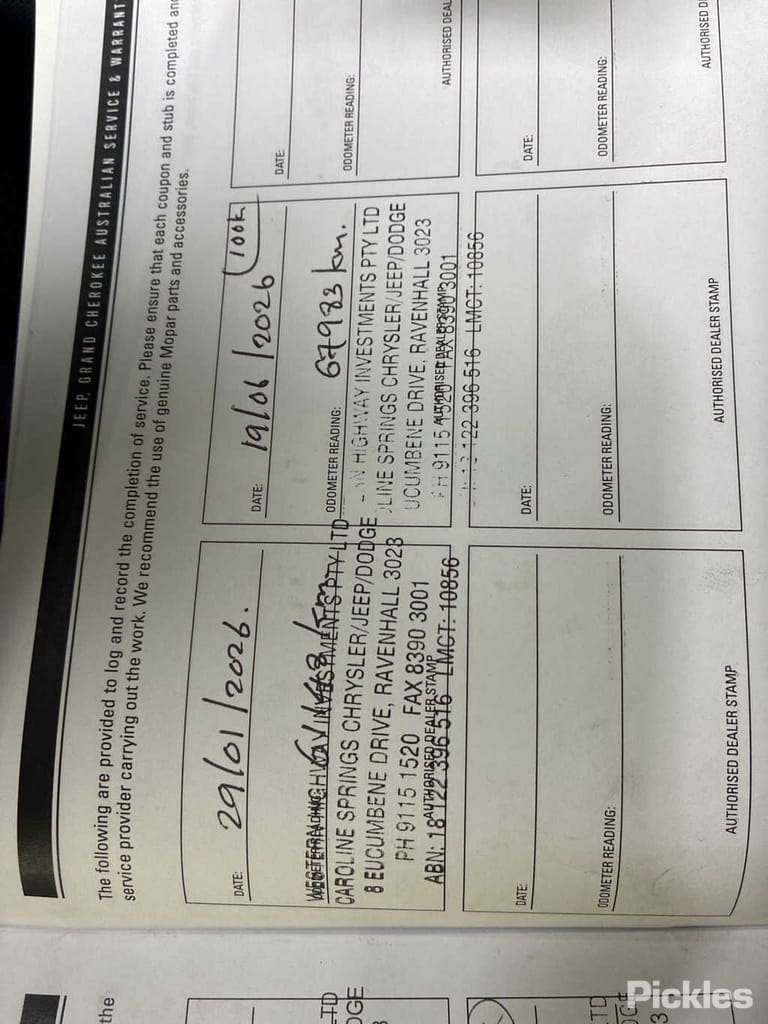 JEEP, GRAND CHEROKEE AUSTRALIAN SERVICE & WARRANT
The following are provided to log and record the completion of service. Please ensure that each coupon and stub is completed and
service provider carrying out the work. We recommend the use of genuine Mopar parts and accessories.
DATE: 29/01/2026.
WESTERN HIGHWAY INVESTMENTS PTY LTD
CAROLINE SPRINGS CHRYSLER/JEEP/DODGE
8 EUCUMBENE DRIVE, RAVENHALL 3023
PH 9115 1520 FAX 8390 3001
AUTHORISED DEALER STAMP
ABN: 18 122 396 516 LMCT: 10856
DATE: 19/06/2026 100K
ODOMETER READING: 67983 km.
HIGHWAY INVESTMENTS PTY LTD
LINE SPRINGS CHRYSLER/JEEP/DODGE
UCUMBENE DRIVE, RAVENHALL 3023
PH 9115 1520 FAX 8390 3001
AUTHORISED DEALER STAMP
122 396 516 LMCT: 10856
DATE:
ODOMETER READING:
AUTHORISED DEAL
DATE:
ODOMETER READING:
AUTHORISED DEALER STAMP
DATE:
ODOMETER READING:
AUTHORISED DEALER STAMP
DATE:
ODOMETER READING:
AUTHORISED D
the
LTD
DGE
3
LTD
DGE
3
Pickles